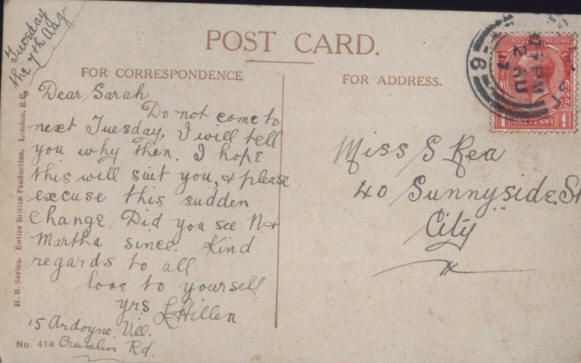 Tuesday
the 7th Aug
POST CARD.
FOR CORRESPONDENCE
Dear Sarah
Do not come to
next Tuesday, I will tell
you why then. I hope
this will suit you, & please
excuse this sudden
change. Did you see N. &
Martha since. Kind
regards to all
love to yourself
yrs L Hillen
15 Ardoyne Vill.
Crumlin Rd.
No. 414
H. B. Series. Entire British Production. London, E.C.
FOR ADDRESS.
Miss S Rea
40 Sunnyside St
City
PM
AU
6
ONE PENNY